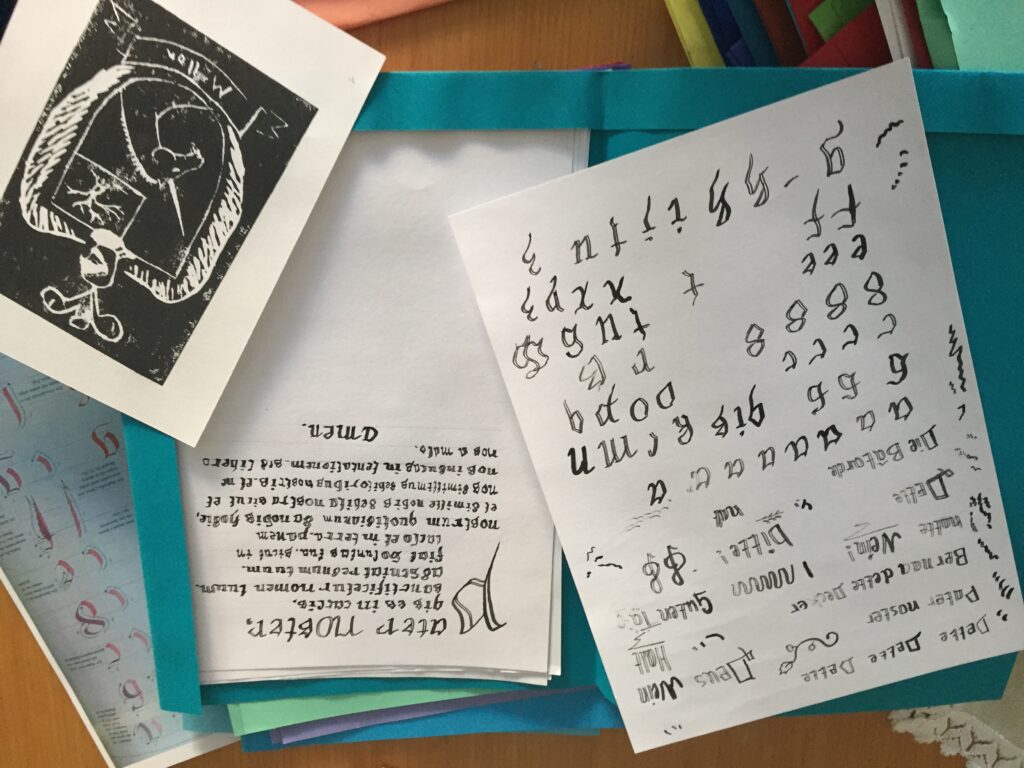 Mellon
Pater noster,
qis es in caelis,
sanctificetur nomen tuum.
adveniat regnum tuum.
fiat voluntas tua, sicut in
caelo et in terra. panem
nostrum quotidianum da nobis hodie,
et dimitte nobis debita nostra sicut et
nos dimittimus debitoribus nostris. et ne
nos inducas in tentationem. sed libera
nos a malo.
amen.
Dette Dette Dette Dette
Pater noster Deus Nein
dette Decker Halt
hatte Nein! Guten Tag
Dette Bitte!
Die Bâtarde hat
a a a a a a a a
b b b g i s k l m n
c c c c o p q
d d d d r s
e e e t u v w
f f x x y z
g - h h h i j t u z